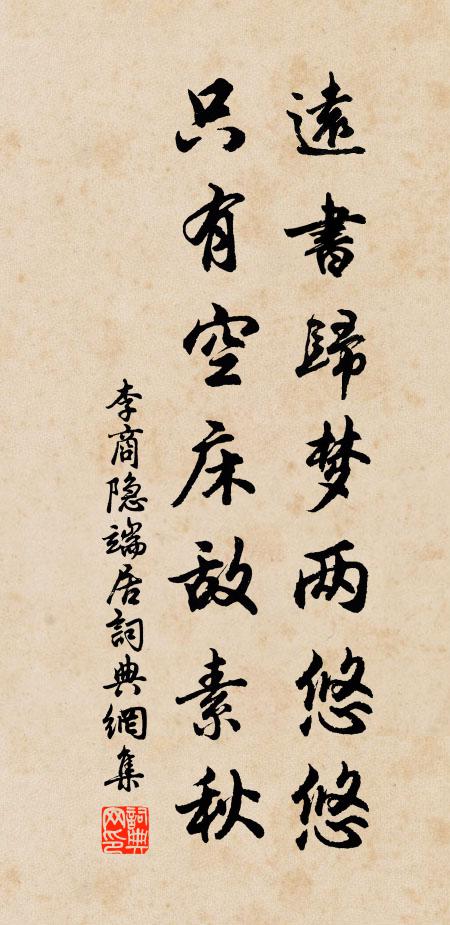 遠書歸梦两悠悠
只有空床敌素秋
李商隐端居詞典網集
詞典网印